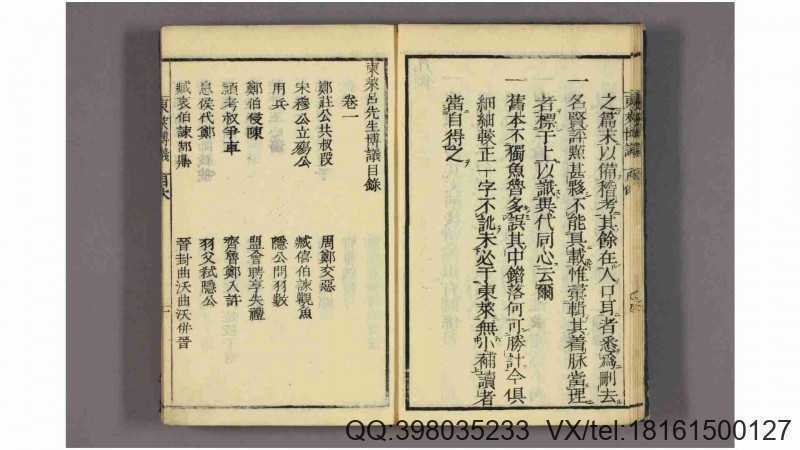 之篇末以備稽考其餘在人口耳者悉為刪去
一名賢評點甚夥不能具載惟彙輯其着脉當理
者標于上以識異代同心云爾
一舊本不獨魚魯多誤其中錯落何可勝計今俱
細細較正一字不訛未必于東萊無小補讀者
當自得之
東萊呂先生博議目錄
卷一
鄭莊公共叔段
周鄭交惡
宋穆公立殤公
臧僖伯諫觀魚
用兵
隱公問羽數
鄭伯侵陳
盟會聘享失禮
潁考叔爭車
齊魯鄭入許
息侯伐鄭
羽父弒隱公
臧哀伯諫郜鼎
晉封曲沃曲沃併晉
東萊博議
目次
一
QQ:398035233 VX/tel:18161500127